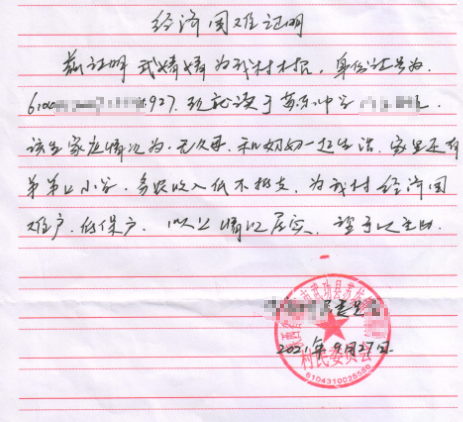 经济困难证明
兹证明 武倩倩 为我村村民，身份证号为
6100 6927. 现就读于苏东中学
该生家庭情况为.无父母.和奶奶一起生活.家里还有
弟弟上小学.务农收入低不抵支.为我村经济困
难户.低保户. 以上情况属实，望予以资助.
2021年9月27日.
村民委员会
6104310025586